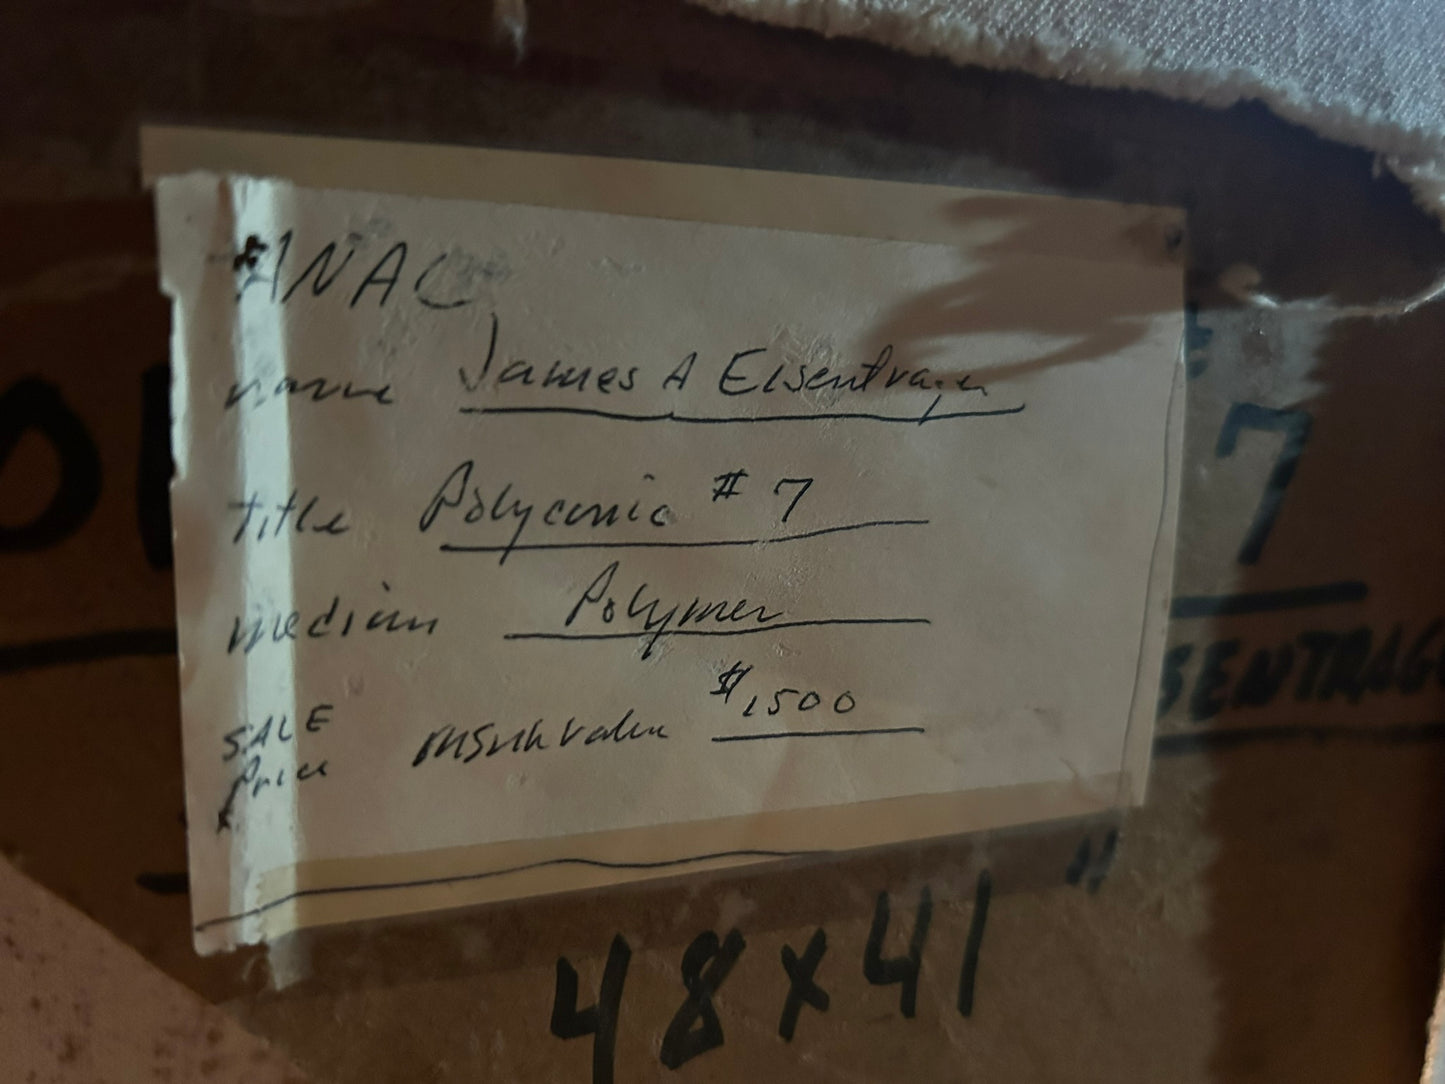 ANAC
name James A Eisentrager
title Polyconic # 7
medium Polymer
SALE Price value $1500
7
SENTRAG
48 x 41 "